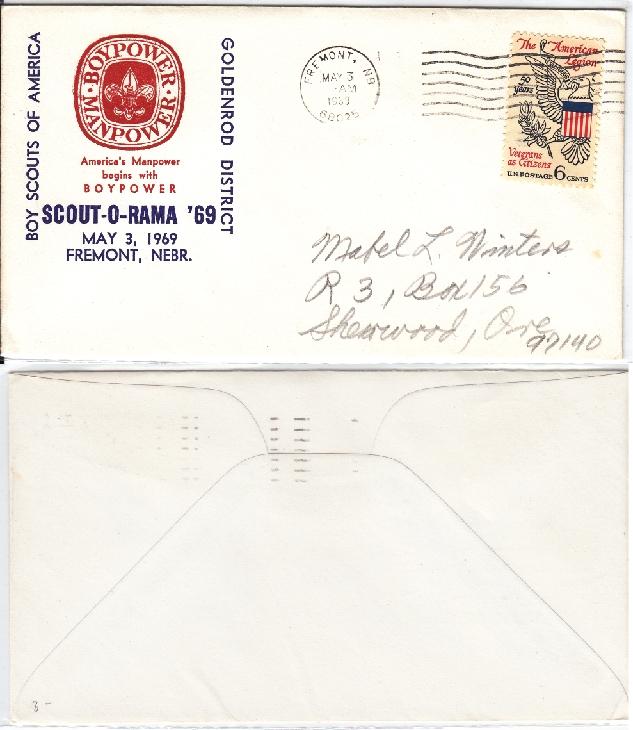 BOY SCOUTS OF AMERICA
BOYPOWER
MANPOWER
America's Manpower
begins with
BOYPOWER
SCOUT-O-RAMA '69
MAY 3, 1969
FREMONT, NEBR.
GOLDENROD DISTRICT
FREMONT, NB
MAY 3
AM
1969
68025
The American
Legion
50
years
Veterans
as Citizens
U.S. POSTAGE 6 CENTS
Mabel L. Winters
R 3, Box 156
Sherwood, Ore
97140
3-